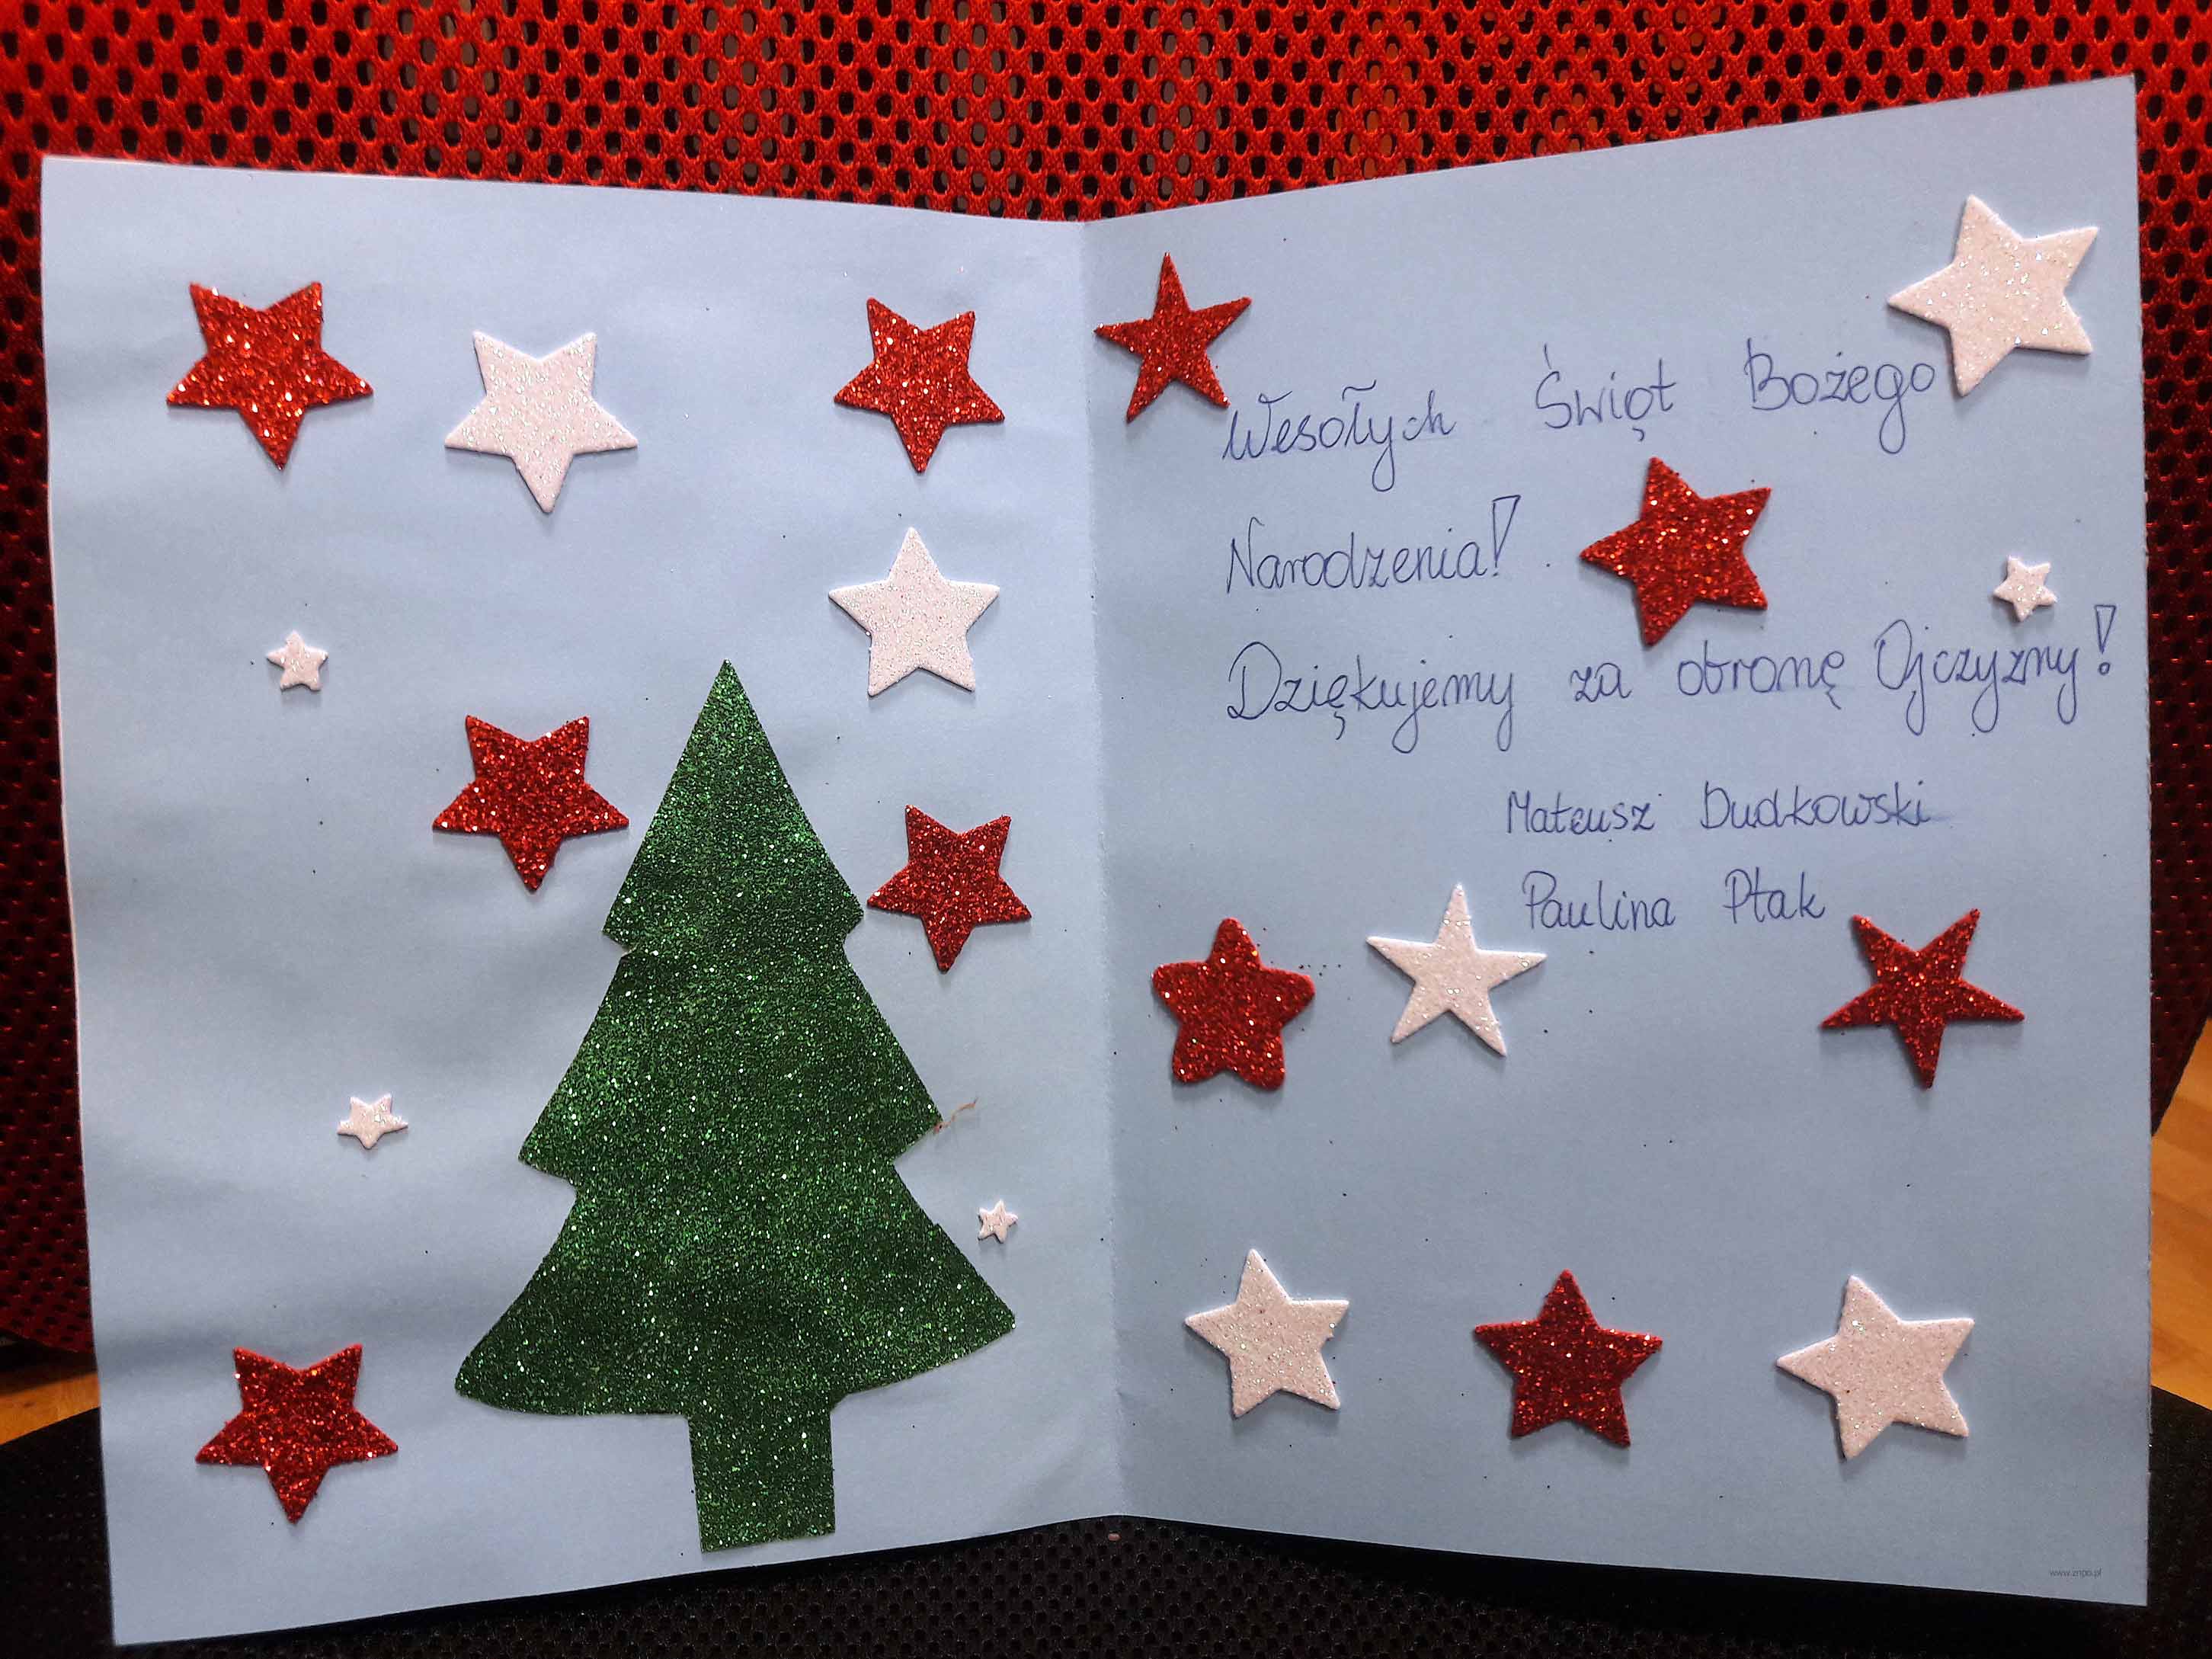 Wesołych Świąt Bożego
Narodzenia!
Dziękujemy za obronę Ojczyzny!
Mateusz Dudkowski
Paulina Ptak
www.znpo.pl